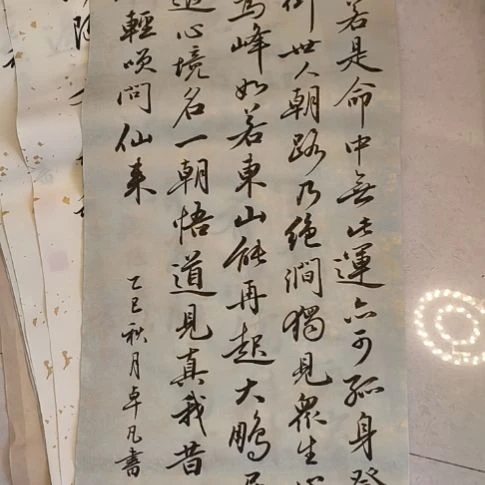 若是命中無此運亦可孤身登
世人朝路乃絕澗獨見眾生
為峰如若東山能再起大鵬
心境名一朝悟道見真我昔
輕嘆問仙來
乙巳秋月卓凡書